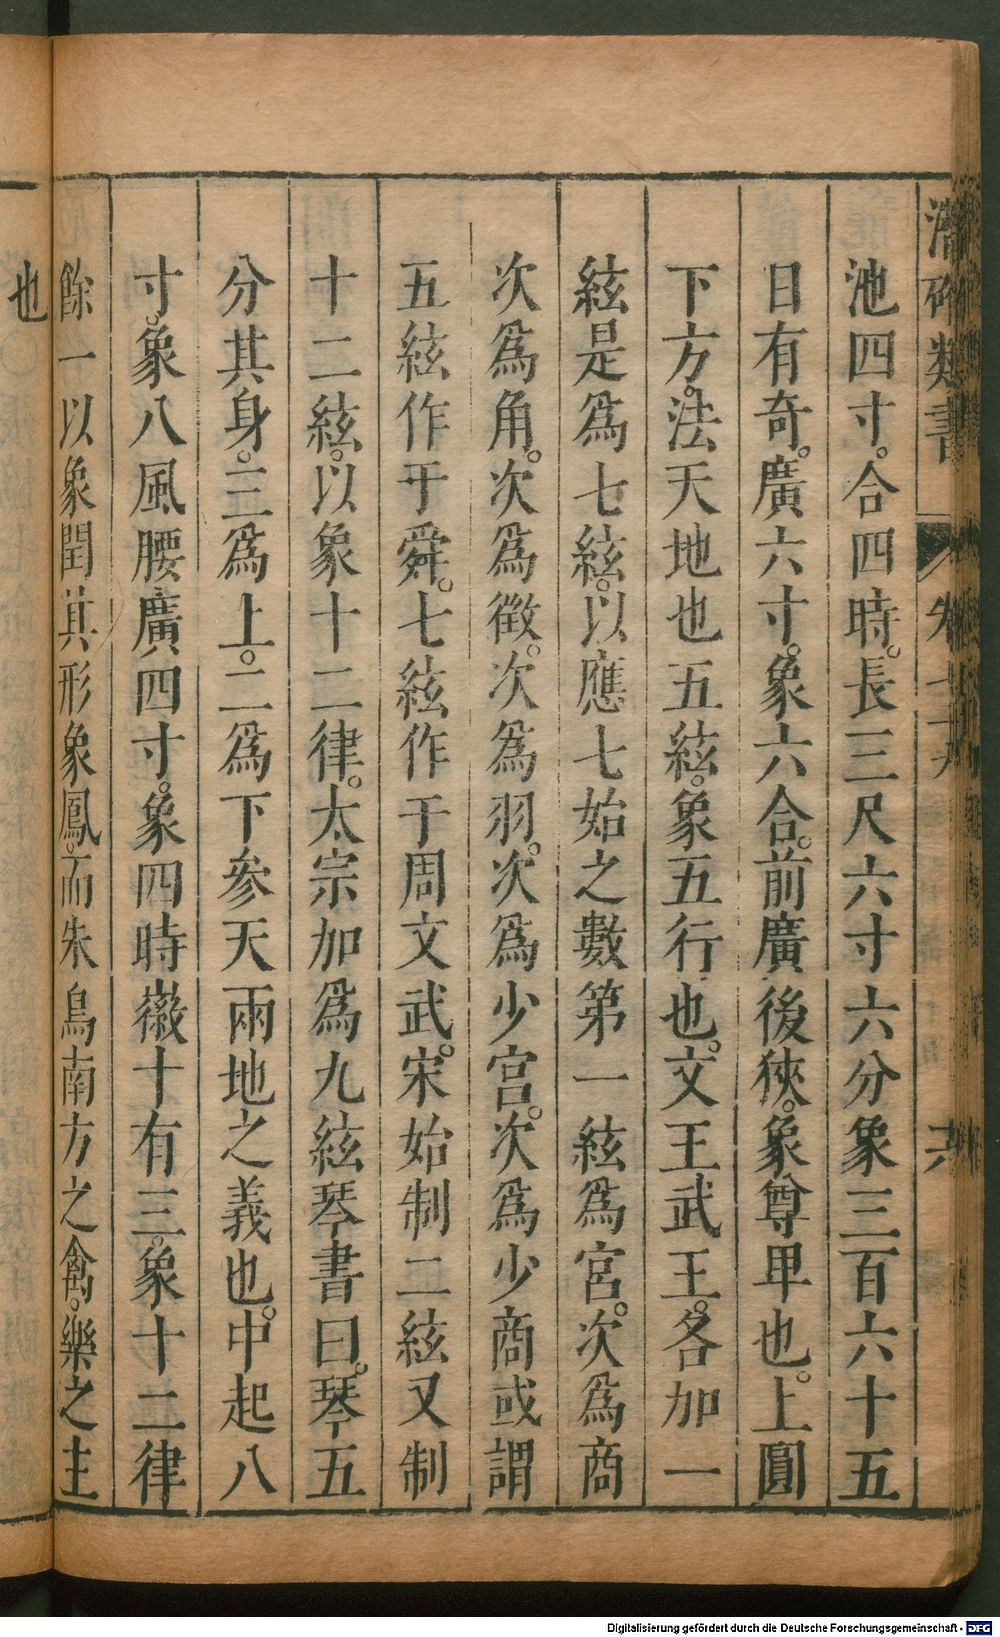 池四寸。合四時。長三尺六寸六分象三百六十五
日有奇。廣六寸。象六合。前廣後狹。象尊卑也。上圓
下方。法天地也五絃。象五行也。文王武王。各加一
絃是爲七絃。以應七始之數第一絃爲宮。次爲商
次爲角。次爲徵。次爲羽。次爲少宮。次爲少商或謂
五絃作于舜。七絃作于周文武。宋始制二絃又制
十二絃。以象十二律。太宗加爲九絃琴書曰。琴五
分其身。三爲上。二爲下參天兩地之義也。中起八
寸。象八風腰廣四寸。象四時徽十有三。象十二律
餘一以象閏其形象鳳。而朱鳥南方之禽。樂之主
也
類書
六
Digitalisierung gefördert durch die Deutsche Forschungsgemeinschaft - DFG